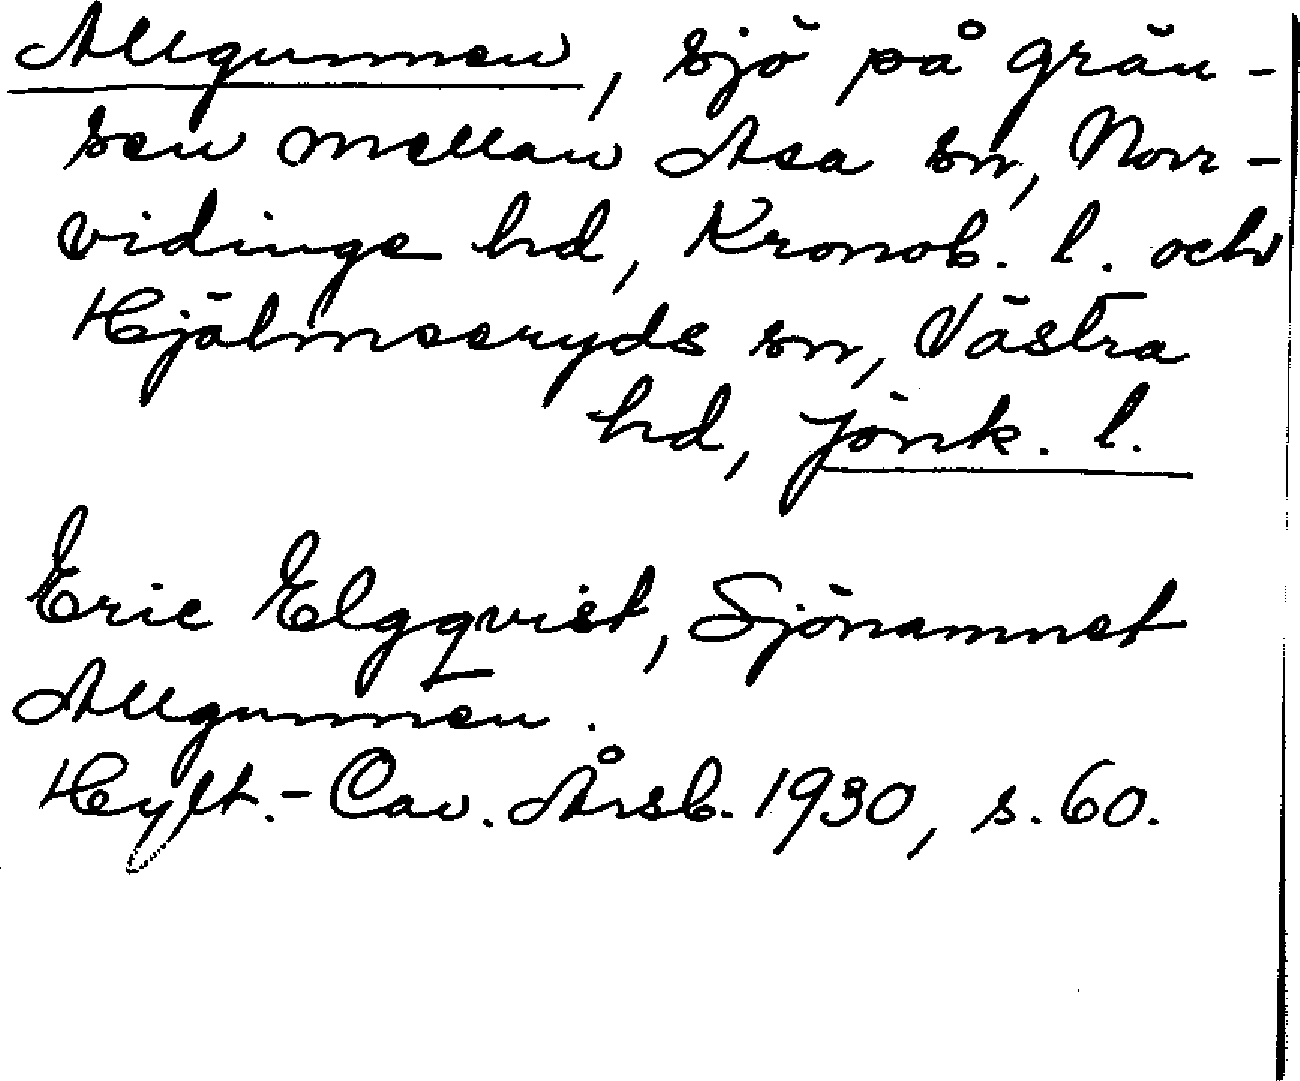 Allgunnen, sjö på grän-
sen mellan Asa sn, Norr-
vidinge hd, Kronob. l. och
Hjälmseryds sn, Västra
hd, Jönk. l.
Eric Elgqvist, Sjönamnet
Allgunnen.
Hylt.-Cav. Årsb. 1930, s. 60.